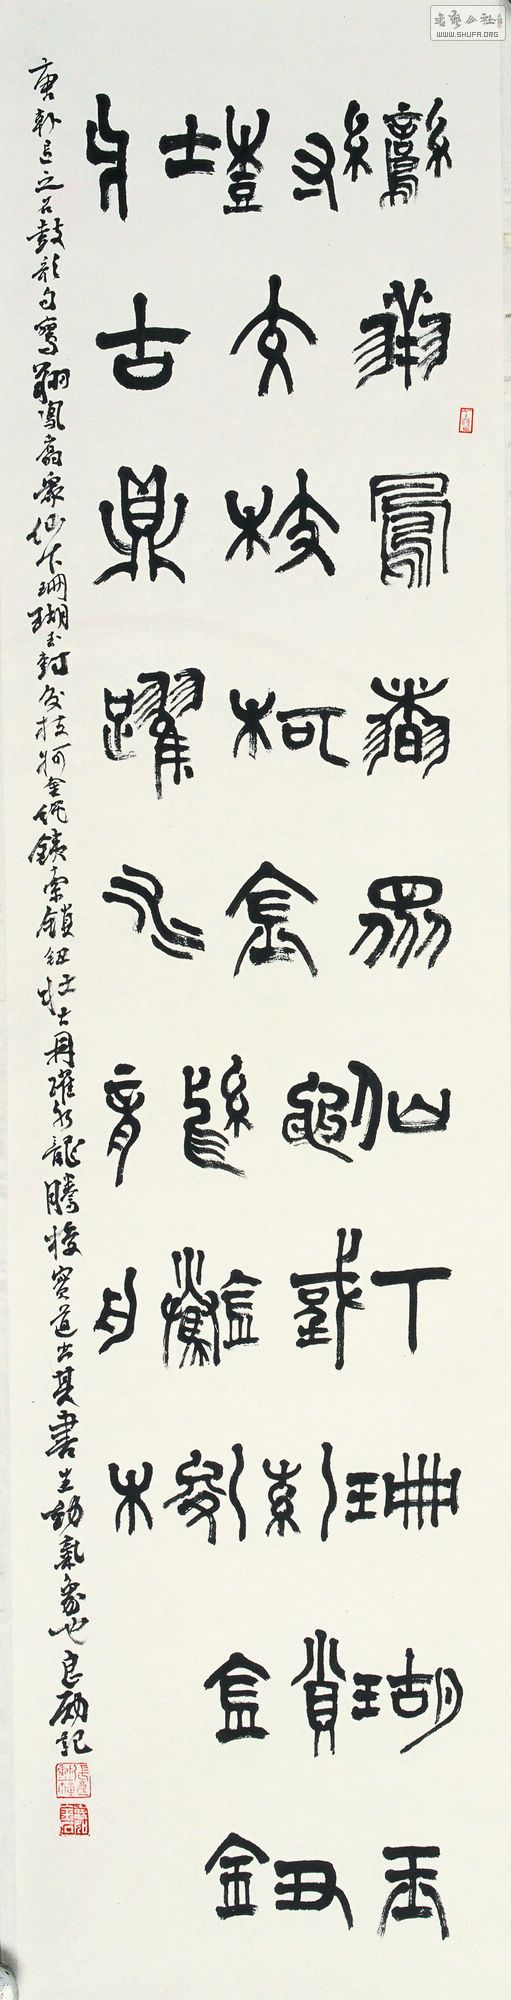 書藝公社
WWW.SHUFA.ORG
鸞翔鳳翥眾仙下珊瑚玉
樹交枝柯金繩鐵索鎖鈕
壯古鼎躍水龍騰梭
唐韓退之石鼓歌句鸞翔鳳翥眾仙下珊瑚玉樹交枝柯金繩鐵索鎖鈕壯古鼎躍水龍騰梭實道出其書生動氣象也良記